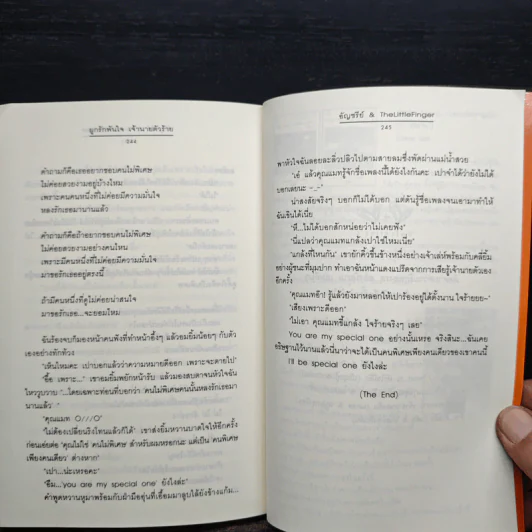 ผูกรักพันใจ เจ้านายตัวร้าย
244
คำถามก็คือเธออยากชอบคนไม่พิเศษ
ไม่ค่อยสวยงามอยู่บ้างไหม
เพราะคนคนหนึ่งที่ไม่ค่อยมีความมั่นใจ
หลงรักเธอมานานแล้ว
คำถามก็คือถ้าอยากชอบคนไม่พิเศษ
ไม่ค่อยสวยงามอย่างคนไหน
เพราะมีคนหนึ่งที่ไม่ค่อยมีความมั่นใจ
มาขอรักเธออยู่ตรงนี้
ถ้ามีคนหนึ่งที่ดูไม่ค่อยน่าสนใจ
มาขอรักเธอ...จะยอมไหม
ฉันร้องจบก็มองหน้าคนฟังที่ทำหน้าอึ้งๆ แล้วอมยิ้มน้อยๆ กับตัว
เองอย่างพักท้วง
"เห็นไหมคะ เปาบอกแล้วว่าความหมายดีออก เพราะจะตายไป"
"อือ เพราะ..." เขาอมยิ้มพยักหน้ารับ แล้วมองสบตาจนหัวใจฉัน
ไหววูบวาบ "...โดยเฉพาะท่อนที่บอกว่า 'คนไม่พิเศษคนนั้นหลงรักเธอมา
นานแล้ว' "
"คุณแมท O///O"
"ไม่ต้องเปลี่ยนริงโทนแล้วก็ได้" เขาส่งยิ้มหวานบาดใจให้อีกครั้ง
ก่อนเอ่ยต่อ "คุณไม่ใช่ 'คนไม่พิเศษ' สำหรับผมหรอกนะ แต่เป็น 'คนพิเศษ
เพียงคนเดียว' ต่างหาก"
"เปา...น่ะเหรอคะ"
"อืม...'you are my special one' ยังไงล่ะ"
คำพูดหวานหูมาพร้อมกับฝ่ามืออุ่นที่เอื้อมมาลูบไล้ยังข้างแก้ม...
อัญชรีย์ & TheLittleFinger
245
พาหัวใจฉันลอยละลิ่วปลิวไปตามสายลมซึ่งพัดผ่านแม่น้ำสวย
"เอ๋ แล้วคุณแมทรู้จักชื่อเพลงนี้ได้ยังไงกันคะ เปาจำได้ว่ายังไม่ได้
บอกเลยนะ -.-"
น่าสงสัยจริงๆ บอกก็ไม่ได้บอก แต่ดันรู้ชื่อเพลงจนเอามาทำให้
ฉันเขินได้เนี่ย
"หึ...ไม่ได้บอกสักหน่อยว่าไม่เคยฟัง"
"นี่แปลว่าคุณแมทแกล้งเปาใช่ไหมเนี่ย"
"แกล้งที่ไหนกัน" เขายักคิ้วขึ้นข้างหนึ่งอย่างเจ้าเล่ห์พร้อมกับคลี่ยิ้ม
อย่างผู้ชนะที่มุมปาก ทำเอาฉันหน้าแดงแปร๊ดจากการเสียรู้เจ้านายตัวเอง
อีกครั้ง
"คุณแมทอ๊า! รู้แล้วยังมาหลอกให้เปาร้องอยู่ได้ตั้งนาน ใจร้ายยย~"
"เสียงเพราะดีออก"
"ไม่เอา คุณแมทขี้แกล้ง ใจร้ายจริงๆ เลย"
You are my special one อย่างนั้นเหรอ จริงสินะ...ฉันเคย
อธิษฐานไว้นานแล้วนี่นาว่าจะได้เป็นคนพิเศษเพียงคนเดียวของเขาคนนี้
I'll be special one ยังไงล่ะ
(The End)